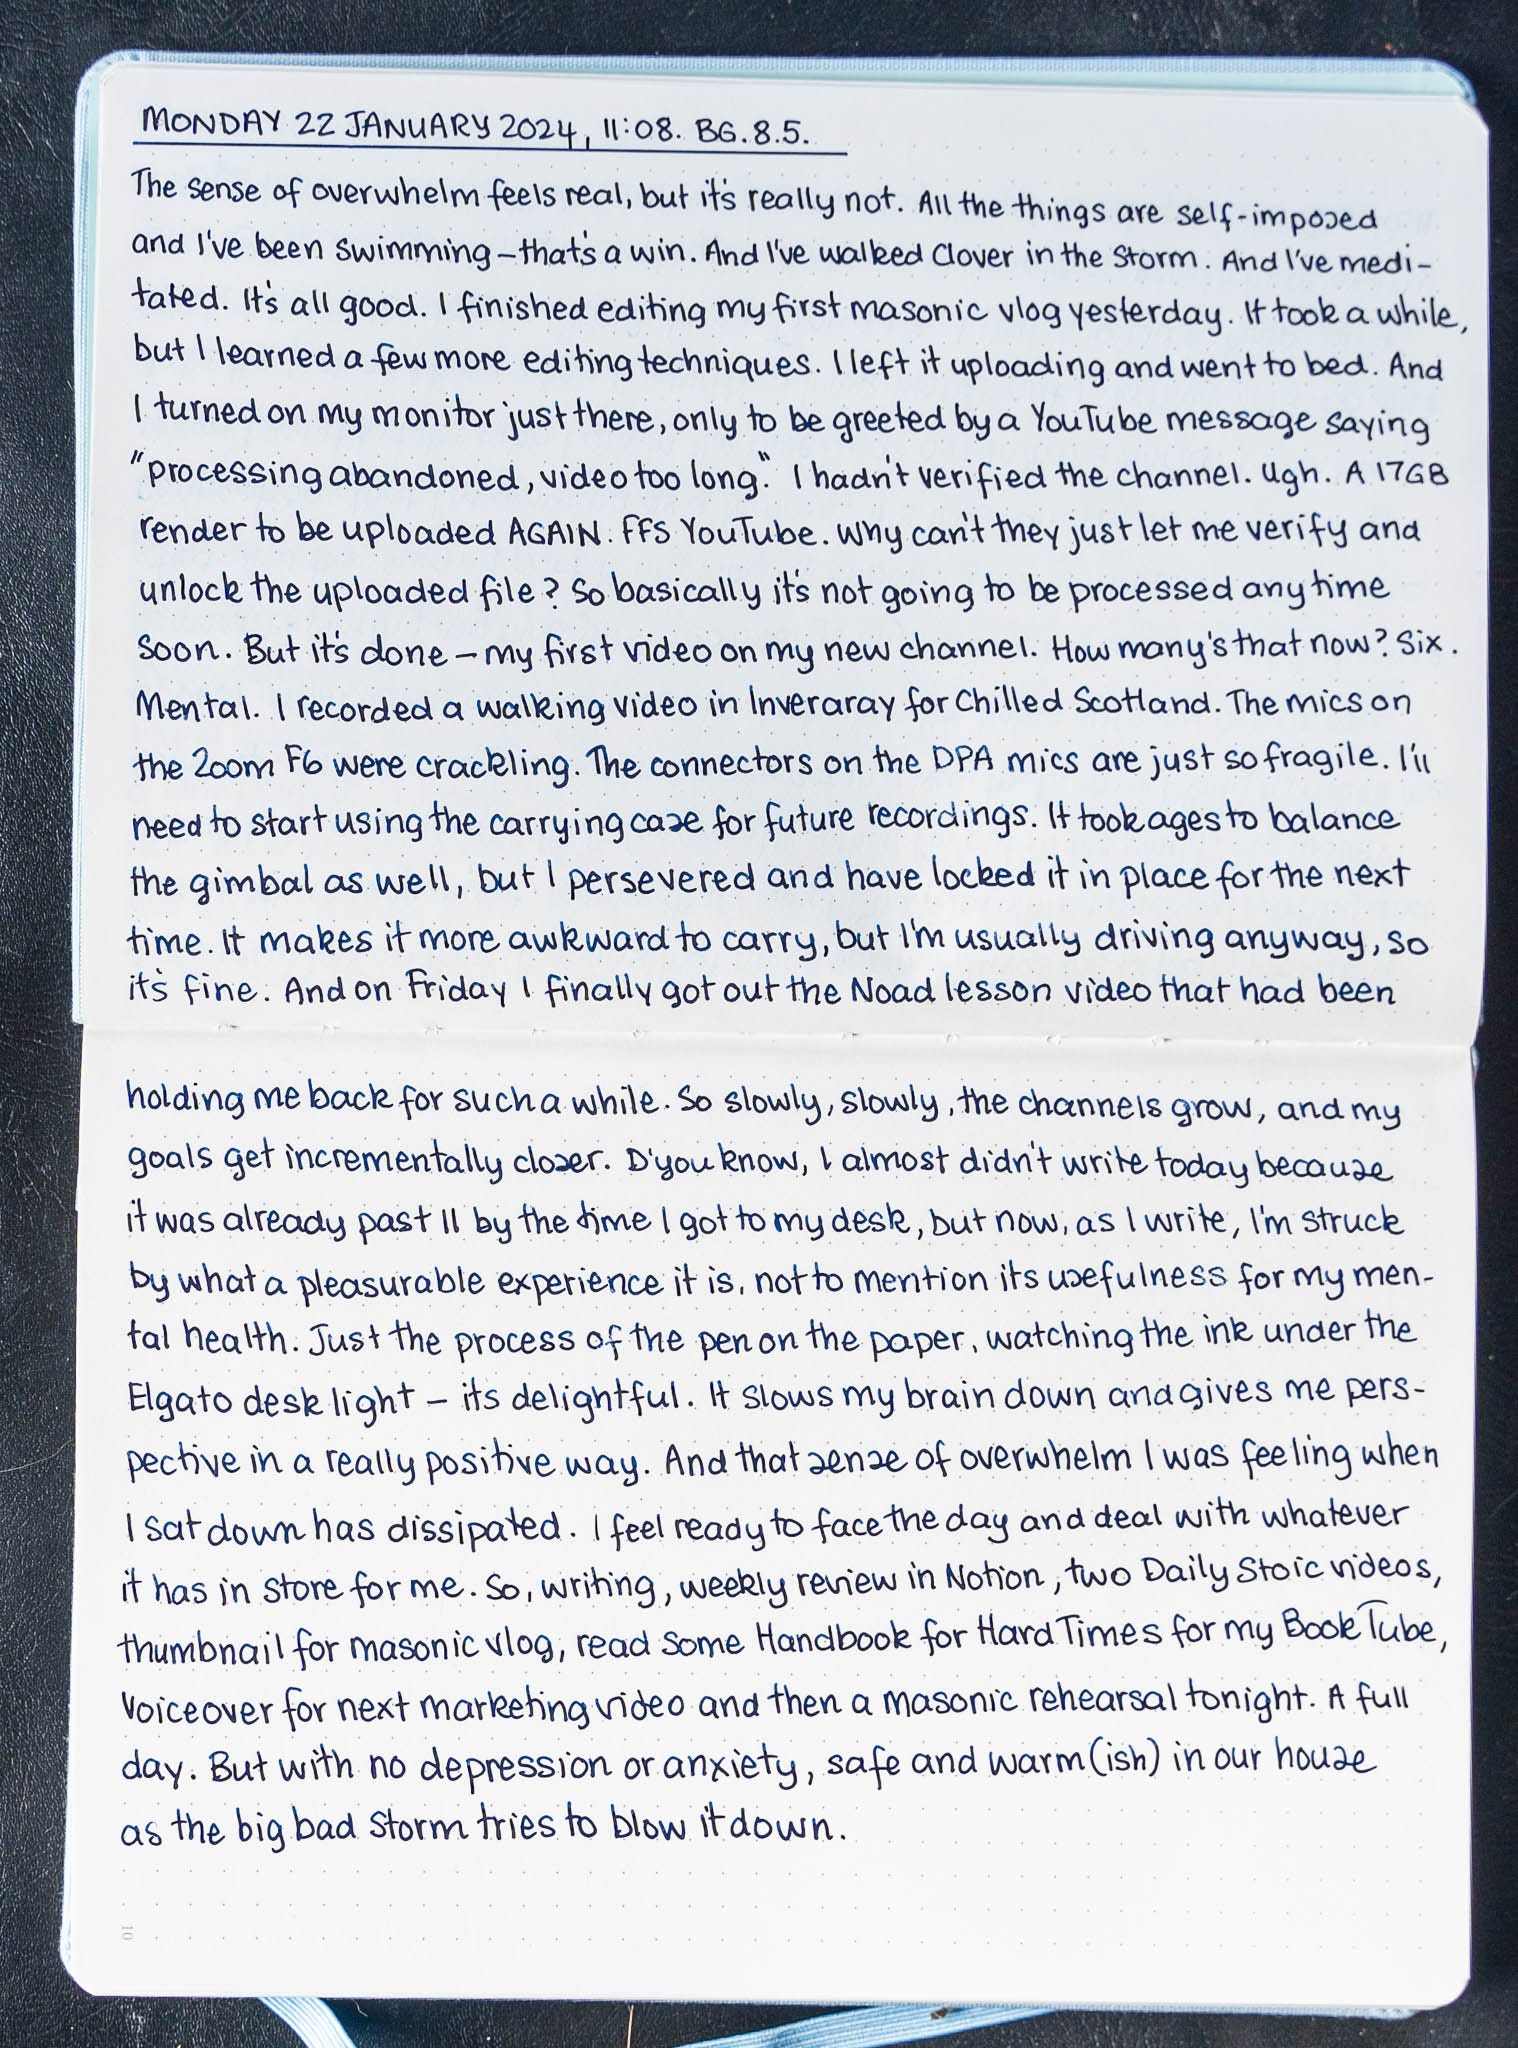 MONDAY 22 JANUARY 2024, 11:08. BG.8.5.
The sense of overwhelm feels real, but it's really not. All the things are self-imposed
and I've been swimming – that's a win. And I've walked Clover in the storm. And I've medi-
tated. It's all good. I finished editing my first masonic vlog yesterday. It took a while,
but I learned a few more editing techniques. I left it uploading and went to bed. And
I turned on my monitor just there, only to be greeted by a YouTube message saying
"processing abandoned, video too long." I hadn't verified the channel. Ugh. A 17GB
render to be uploaded AGAIN. FFS YouTube. Why can't they just let me verify and
unlock the uploaded file? So basically it's not going to be processed any time
soon. But it's done – my first video on my new channel. How many's that now? Six.
Mental. I recorded a walking video in Inveraray for Chilled Scotland. The mics on
the Zoom F6 were crackling. The connectors on the DPA mics are just so fragile. I'll
need to start using the carrying case for future recordings. It took ages to balance
the gimbal as well, but I persevered and have locked it in place for the next
time. It makes it more awkward to carry, but I'm usually driving anyway, so
it's fine. And on Friday I finally got out the Noad lesson video that had been
holding me back for such a while. So slowly, slowly, the channels grow, and my
goals get incrementally closer. D'you know, I almost didn't write today because
it was already past 11 by the time I got to my desk, but now, as I write, I'm struck
by what a pleasurable experience it is, not to mention its usefulness for my men-
tal health. Just the process of the pen on the paper, watching the ink under the
Elgato desk light – its delightful. It slows my brain down and gives me pers-
pective in a really positive way. And that sense of overwhelm I was feeling when
I sat down has dissipated. I feel ready to face the day and deal with whatever
it has in store for me. So, writing, weekly review in Notion, two Daily Stoic videos,
thumbnail for masonic vlog, read some Handbook for Hard Times for my BookTube,
voiceover for next marketing video and then a masonic rehearsal tonight. A full
day. But with no depression or anxiety, safe and warm(ish) in our house
as the big bad storm tries to blow it down.
10